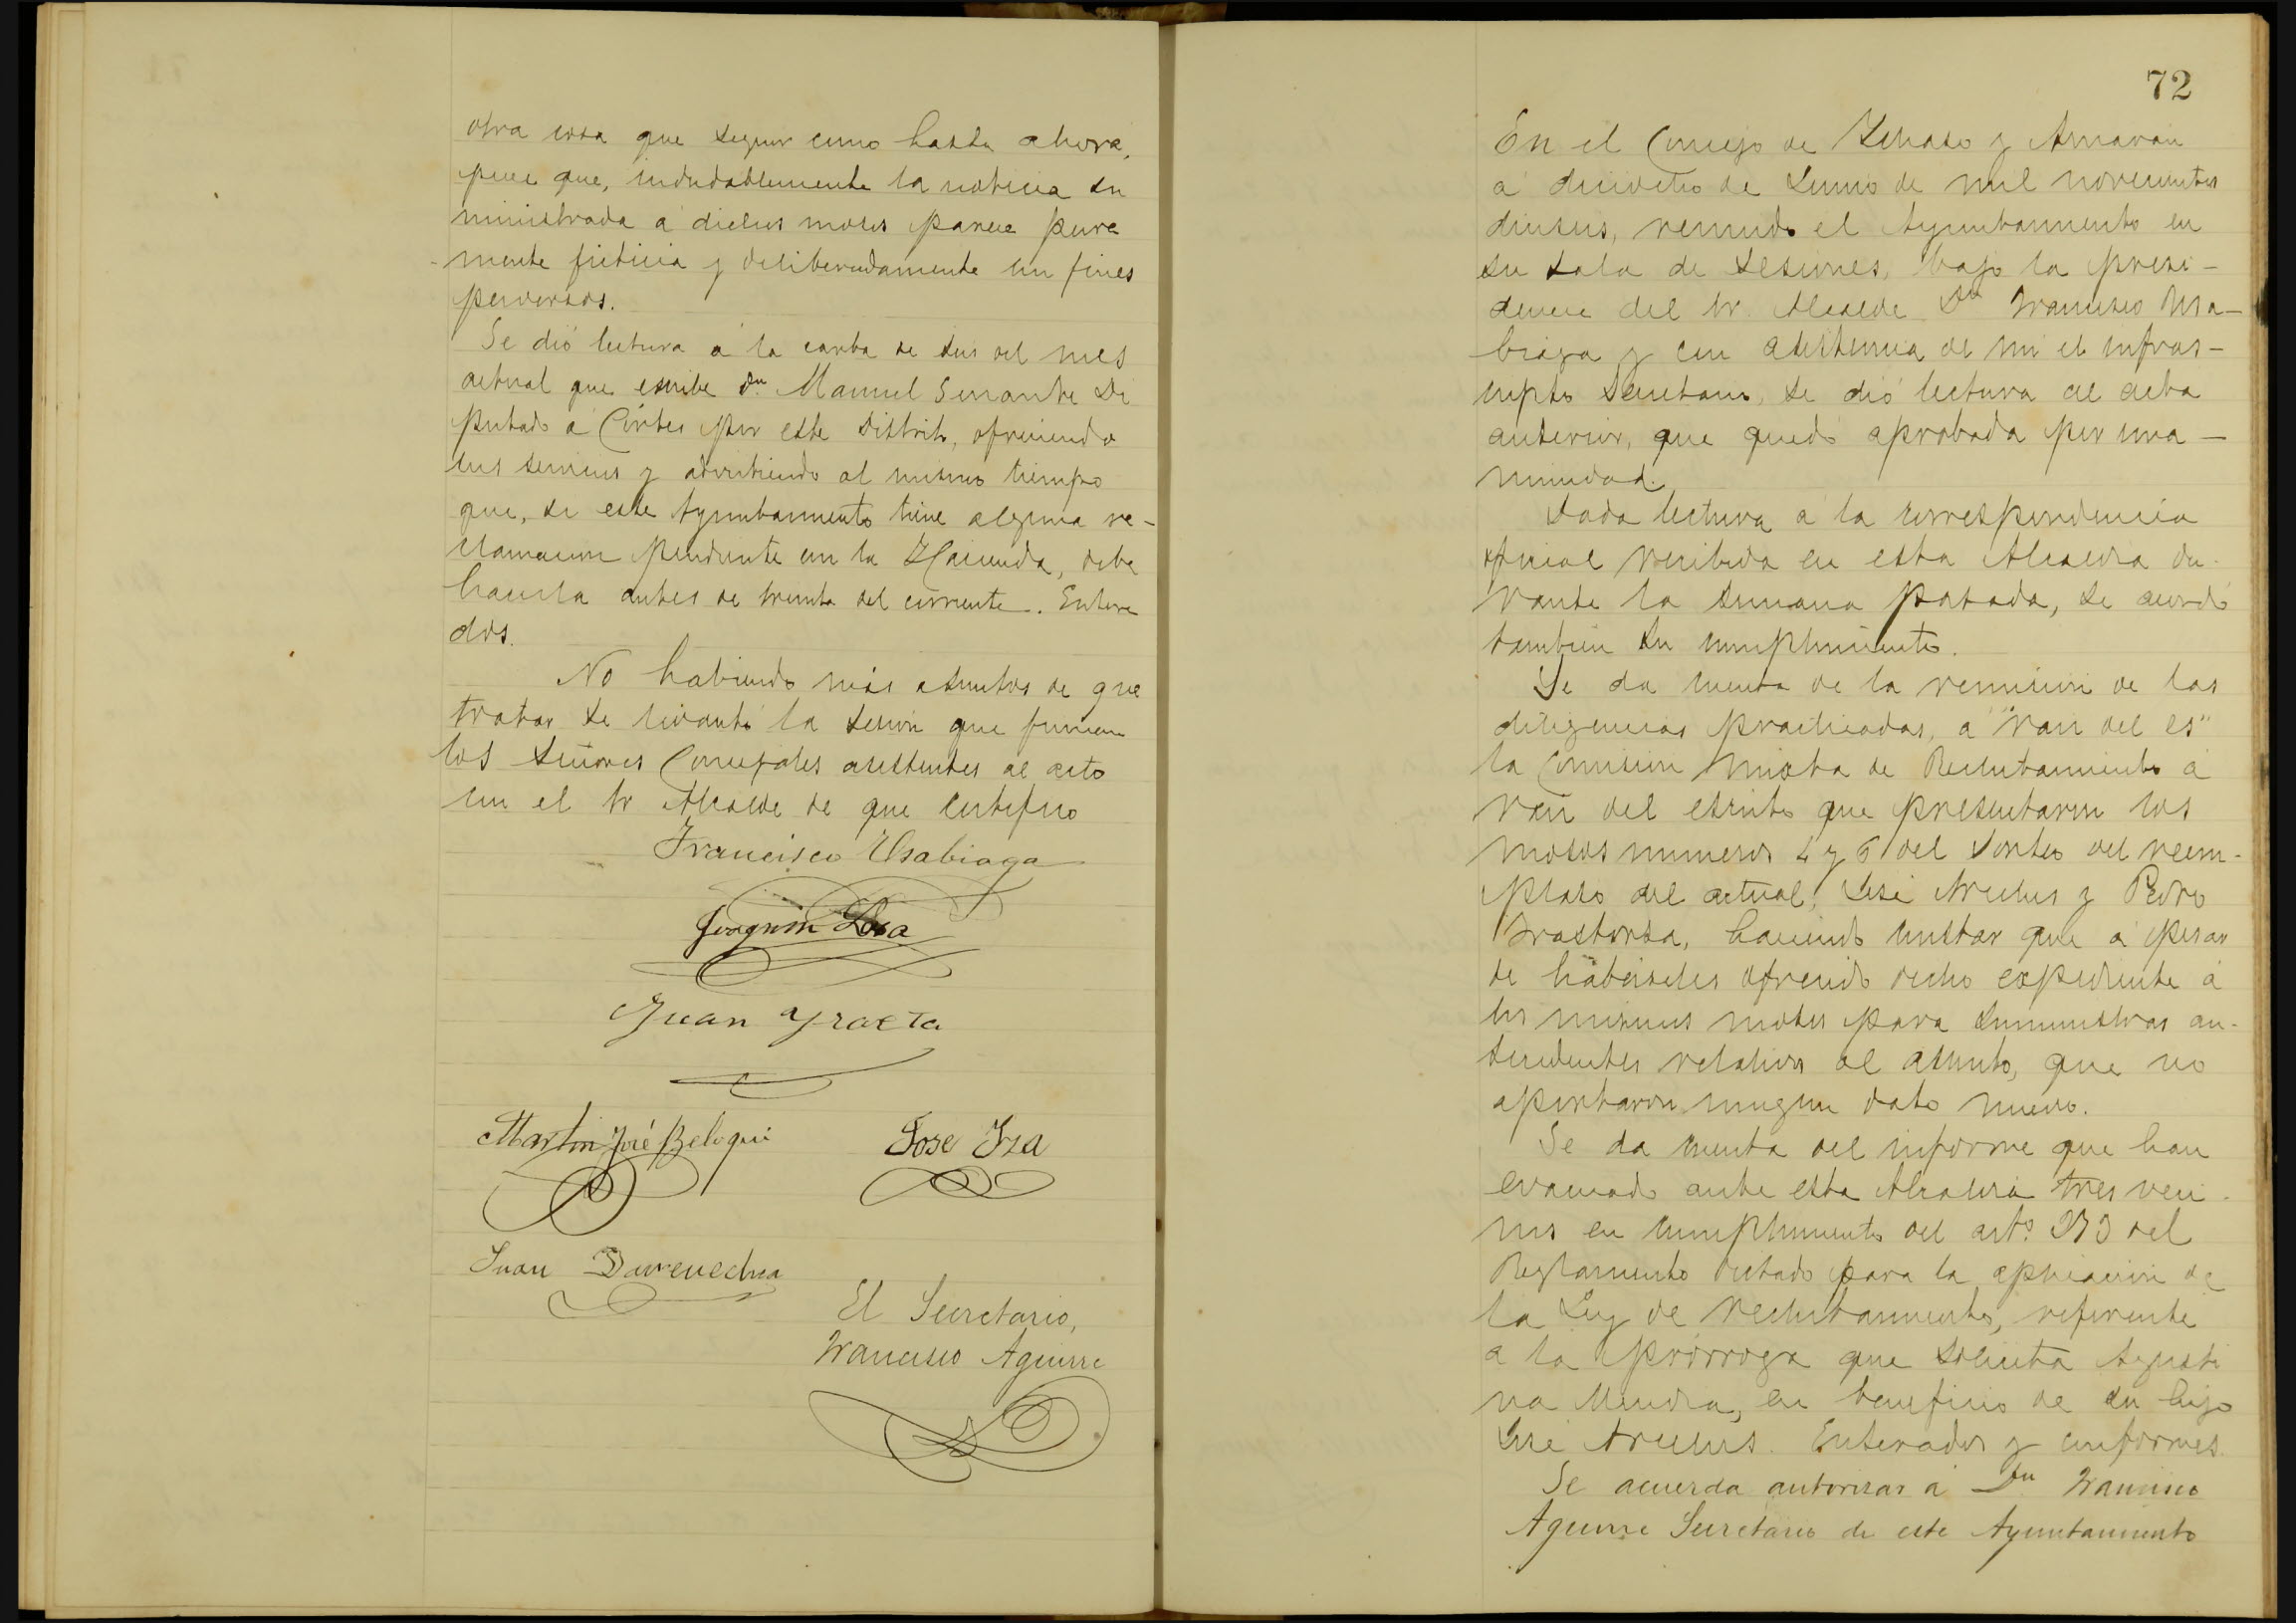 otra cosa que seguir como hasta ahora,
pues que, indudablemente la noticia su
ministrada á dichos mozos parece pura
-mente ficticia y deliberadamente con fines
perversos.
Se dió lectura á la carta de seis del mes
actual que escribe Dn. Manuel Senante Di
putado á Córtes por este Distrito, ofreciendo
sus servicios y advirtiendo al mismo tiempo
que, si este Ayuntamiento tiene alguna re-
clamacion pendiente con la Hacienda, debe
hacerla antes de treinta del corriente. Entera
dos.
No habiendo más asuntos de que
tratar se levantó la sesión que firman
los Señores Concejales asistentes al acto
con el Sr Alcalde de que certifico
Francisco Usabiaga
Joaquin Loza
Juan Yraeta
Martin José Beloqui
Jose Iza
Juan Darreuechea
El Secretario,
Francisco Aguirre
72
En el Concejo de y
á dieciocho de Junio de mil novecientos
dieciseis, reunido el Ayuntamiento en
su sala de sesiones, bajo la presi-
dencia del Sr. Alcalde Dn Francisco Usa-
biaga y con asistencia de mi el infras-
cripto Secretario, se dió lectura al acta
anterior, que quedó aprobada por una-
nimidad.
Dada lectura á la correspondencia
oficial recibida en esta Alcaldia du-
rante la semana pasada, se acordó
tambien su cumplimiento.
Se da cuenta de la remision de las
diligencias practicadas, a "raiz del es"
la Comision Mixta de Reclutamiento á
raiz del escrito que presentaron los
mozos numeros 4 y 6 del Sorteo del reem-
plazo del actual, José Arechus y Pedro
Irastorza, haciendo constar que á pesar
de habérseles ofrecido dicho expediente á
los mismos mozos para suministrar an-
tecedentes relativos al asunto, que no
aportaron ningun dato nuevo.
Se da cuenta del informe que han
evacuado ante esta Alcaldia tres veci-
nos en cumplimiento del artº. 273 del
Reglamento dictado para la aplicación de
la Ley de reclutamiento, referente
a la prórroga que solicita Agusti
na Mendia, en beneficio de su hijo
José Arechus. Enterados y conformes.
Se acuerda autorizar á Dn Francisco
Aguirre Secretario de este Ayuntamiento